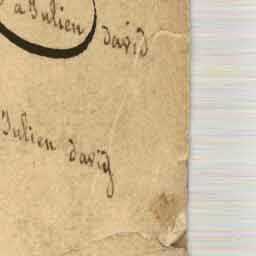 a Julien david
Julien david